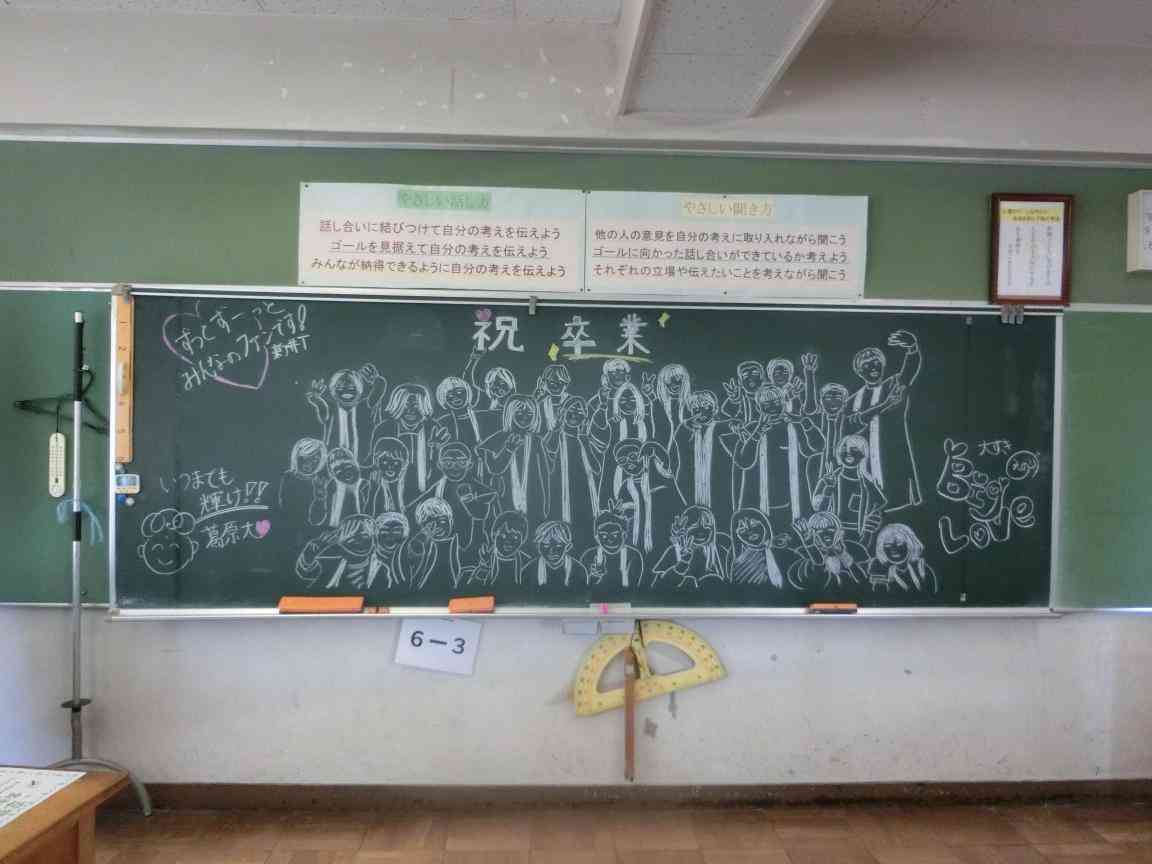 やさしい話し方
話し合いに結びつけて自分の考えを伝えよう
ゴールを見据えて自分の考えを伝えよう
みんなが納得できるように自分の考えを伝えよう
やさしい聞き方
他の人の意見を自分の考えに取り入れながら聞こう
ゴールに向かった話し合いができているか考えよう
それぞれの立場や伝えたいことを考えながら聞こう
祝 卒業
ずっとずーっと
みんなのファンです!
いつまでも
輝け!!
葛原大
大すき
Love
6-3